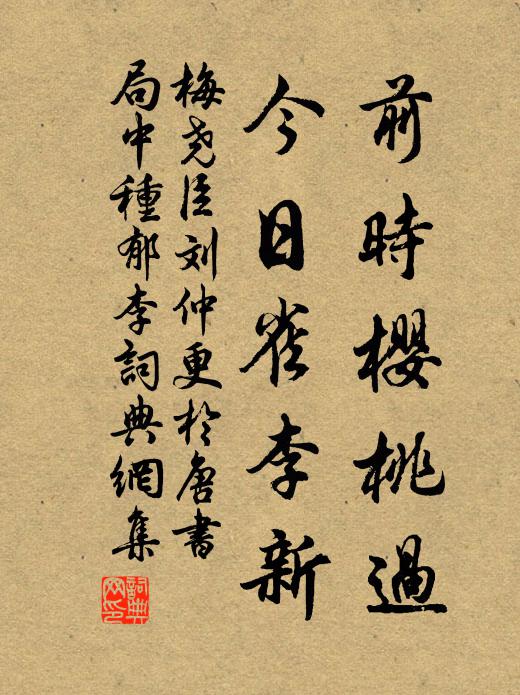 前時櫻桃過
今日雀李新
梅尧臣刘仲更於唐書
局中種郁李詞典網集
詞典网印